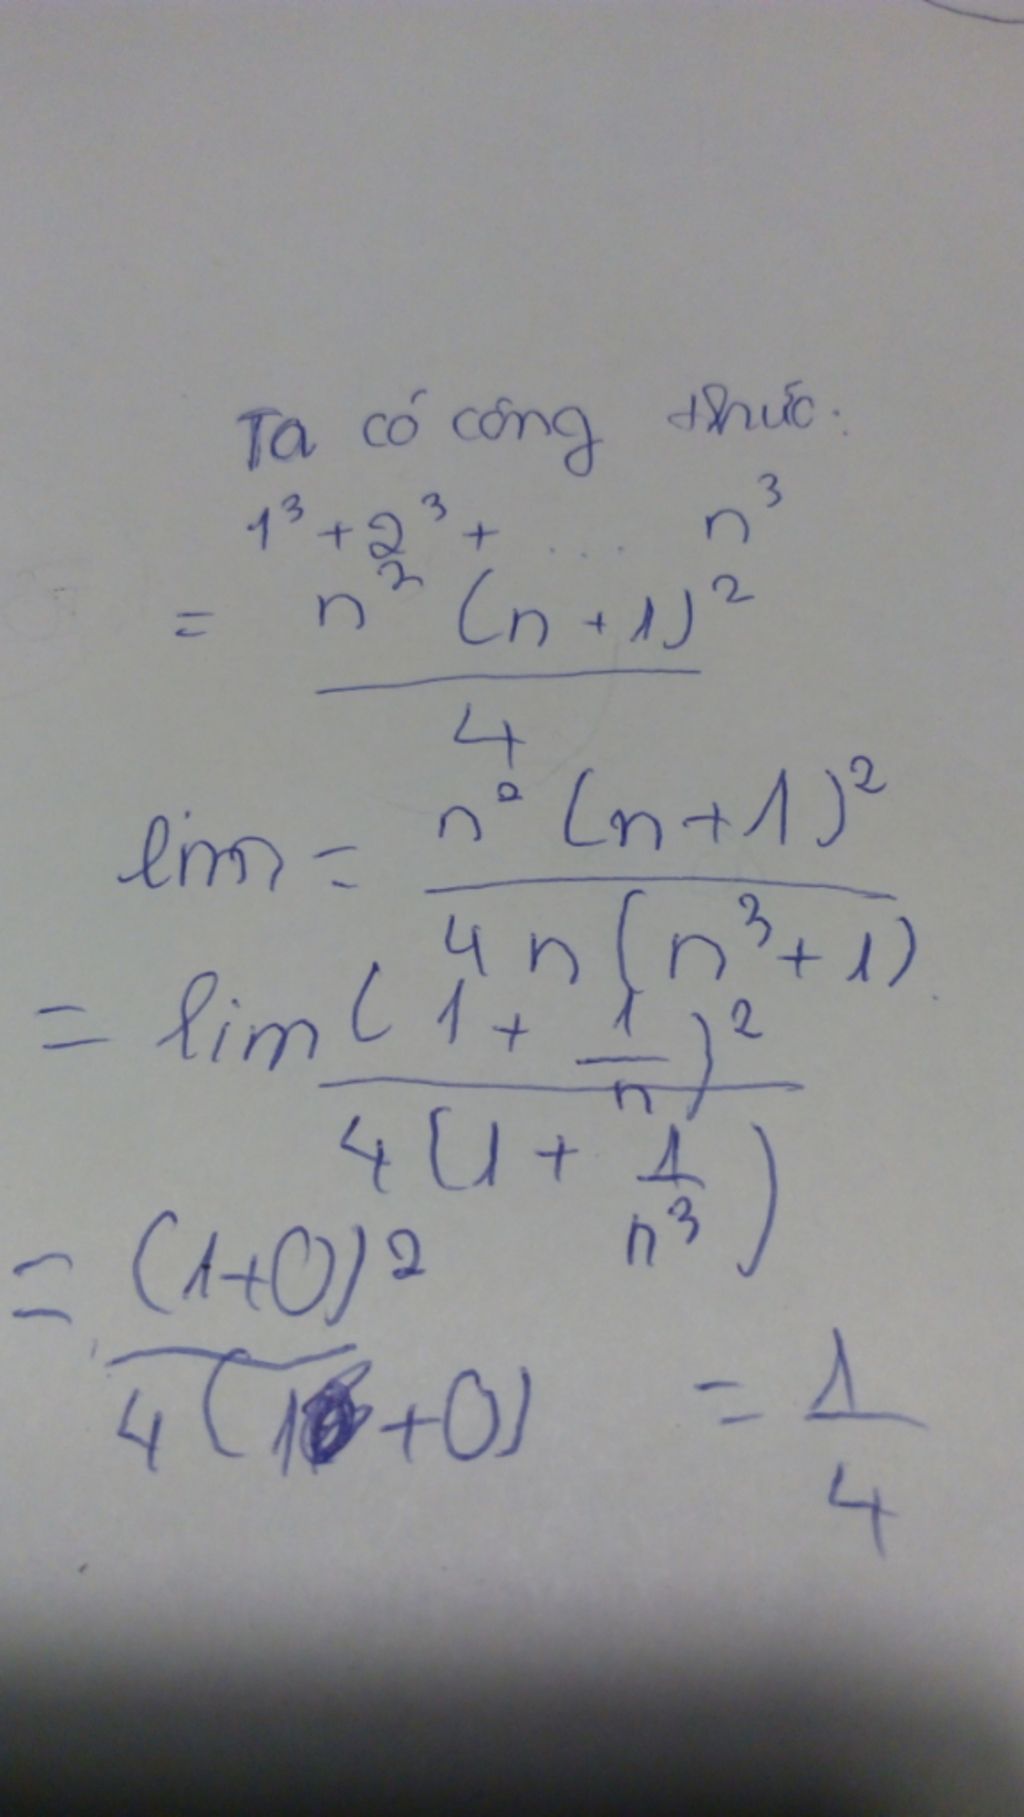 Ta có công thức.
1³ + 2³ + ... n³
= n² (n + 1)² / 4
lim = n² (n + 1)² / 4 n (n³ + 1)
= lim (1 + 1/n)² / 4 (1 + 1/n³)
= (1+0)² / 4 (1 + 0) = 1/4